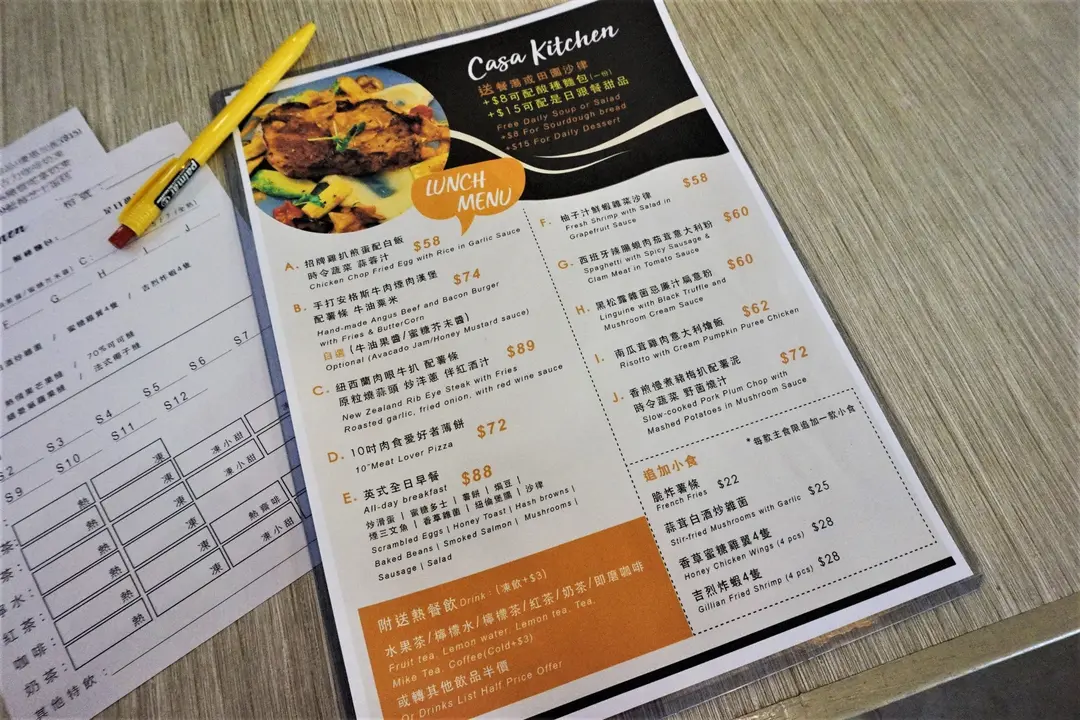 Casa Kitchen
送餐湯或田園沙律
+$8可配酸種麵包(一份)
+$15可配是日跟餐甜品
Free Daily Soup or Salad
+$8 For Sourdough bread
+$15 For Daily Dessert
LUNCH
MENU
A. 招牌雞扒煎蛋配白飯 $58
時令蔬菜 蒜蓉汁
Chicken Chop Fried Egg with Rice in Garlic Sauce
B. 手打安格斯牛肉煙肉漢堡 $74
配薯條 牛油粟米
Hand-made Angus Beef and Bacon Burger
with Fries & ButterCorn
自選 (牛油果醬/蜜糖芥末醬)
Optional (Avacado Jam/Honey Mustard sauce)
C. 紐西蘭肉眼牛扒 配薯條 $89
原粒燒蒜頭 炒洋蔥 伴紅酒汁
New Zealand Rib Eye Steak with Fries
Roasted garlic, fried onion, with red wine sauce
D. 10吋肉食愛好者薄餅 $72
10"Meat Lover Pizza
E. 英式全日早餐 $88
All-day breakfast
炒滑蛋 | 蜜糖多士 | 薯餅 | 焗豆 |
煙三文魚 | 香草雜菌 | 紐倫堡腸 | 沙律
Scrambled Eggs | Honey Toast | Hash browns |
Baked Beans | Smoked Salmon | Mushrooms |
Sausage | Salad
附送熱餐飲 Drink: (凍飲+$3)
水果茶/檸檬水/檸檬茶/紅茶/奶茶/即磨咖啡
Fruit tea, Lemon water, Lemon tea, Tea,
Mike Tea, Coffee(Cold+$3)
或轉其他飲品半價
Or Drinks List Half Price Offer
F. 柚子汁鮮蝦雜菜沙律 $58
Fresh Shrimp with Salad in
Grapefruit Sauce
G. 西班牙辣腸蜆肉茄茸意大利粉 $60
Spaghetti with Spicy Sausage &
Clam Meat in Tomato Sauce
H. 黑松露雜菌忌廉汁扁意粉 $60
Linguine with Black Truffle and
Mushroom Cream Sauce
I. 南瓜茸雞肉意大利燴飯 $62
Risotto with Cream Pumpkin Puree Chicken
J. 香煎慢煮豬梅扒配薯泥 $72
時令蔬菜 野菌燒汁
Slow-cooked Pork Plum Chop with
Mashed Potatoes in Mushroom Sauce
*每款主食限追加一款小食
追加小食
脆炸薯條 $22
French Fries
蒜茸白酒炒雜菌 $25
Stir-fried Mushrooms with Garlic
香草蜜糖雞翼4隻 $28
Honey Chicken Wings (4 pcs)
吉烈炸蝦4隻 $28
Gillian Fried Shrimp (4 pcs)
palmar
C: I J
G H
E
蜜糖雞翼4隻 / 吉烈炸蝦4隻
S3 S4 S5 S6 S7
S9 S10 S11 S12
熱 凍 凍小甜
熱 凍 凍小甜
熱 凍 熱齋啡
熱 凍 凍小甜
熱 凍
紅茶:
咖啡:
奶茶:
其他特飲: